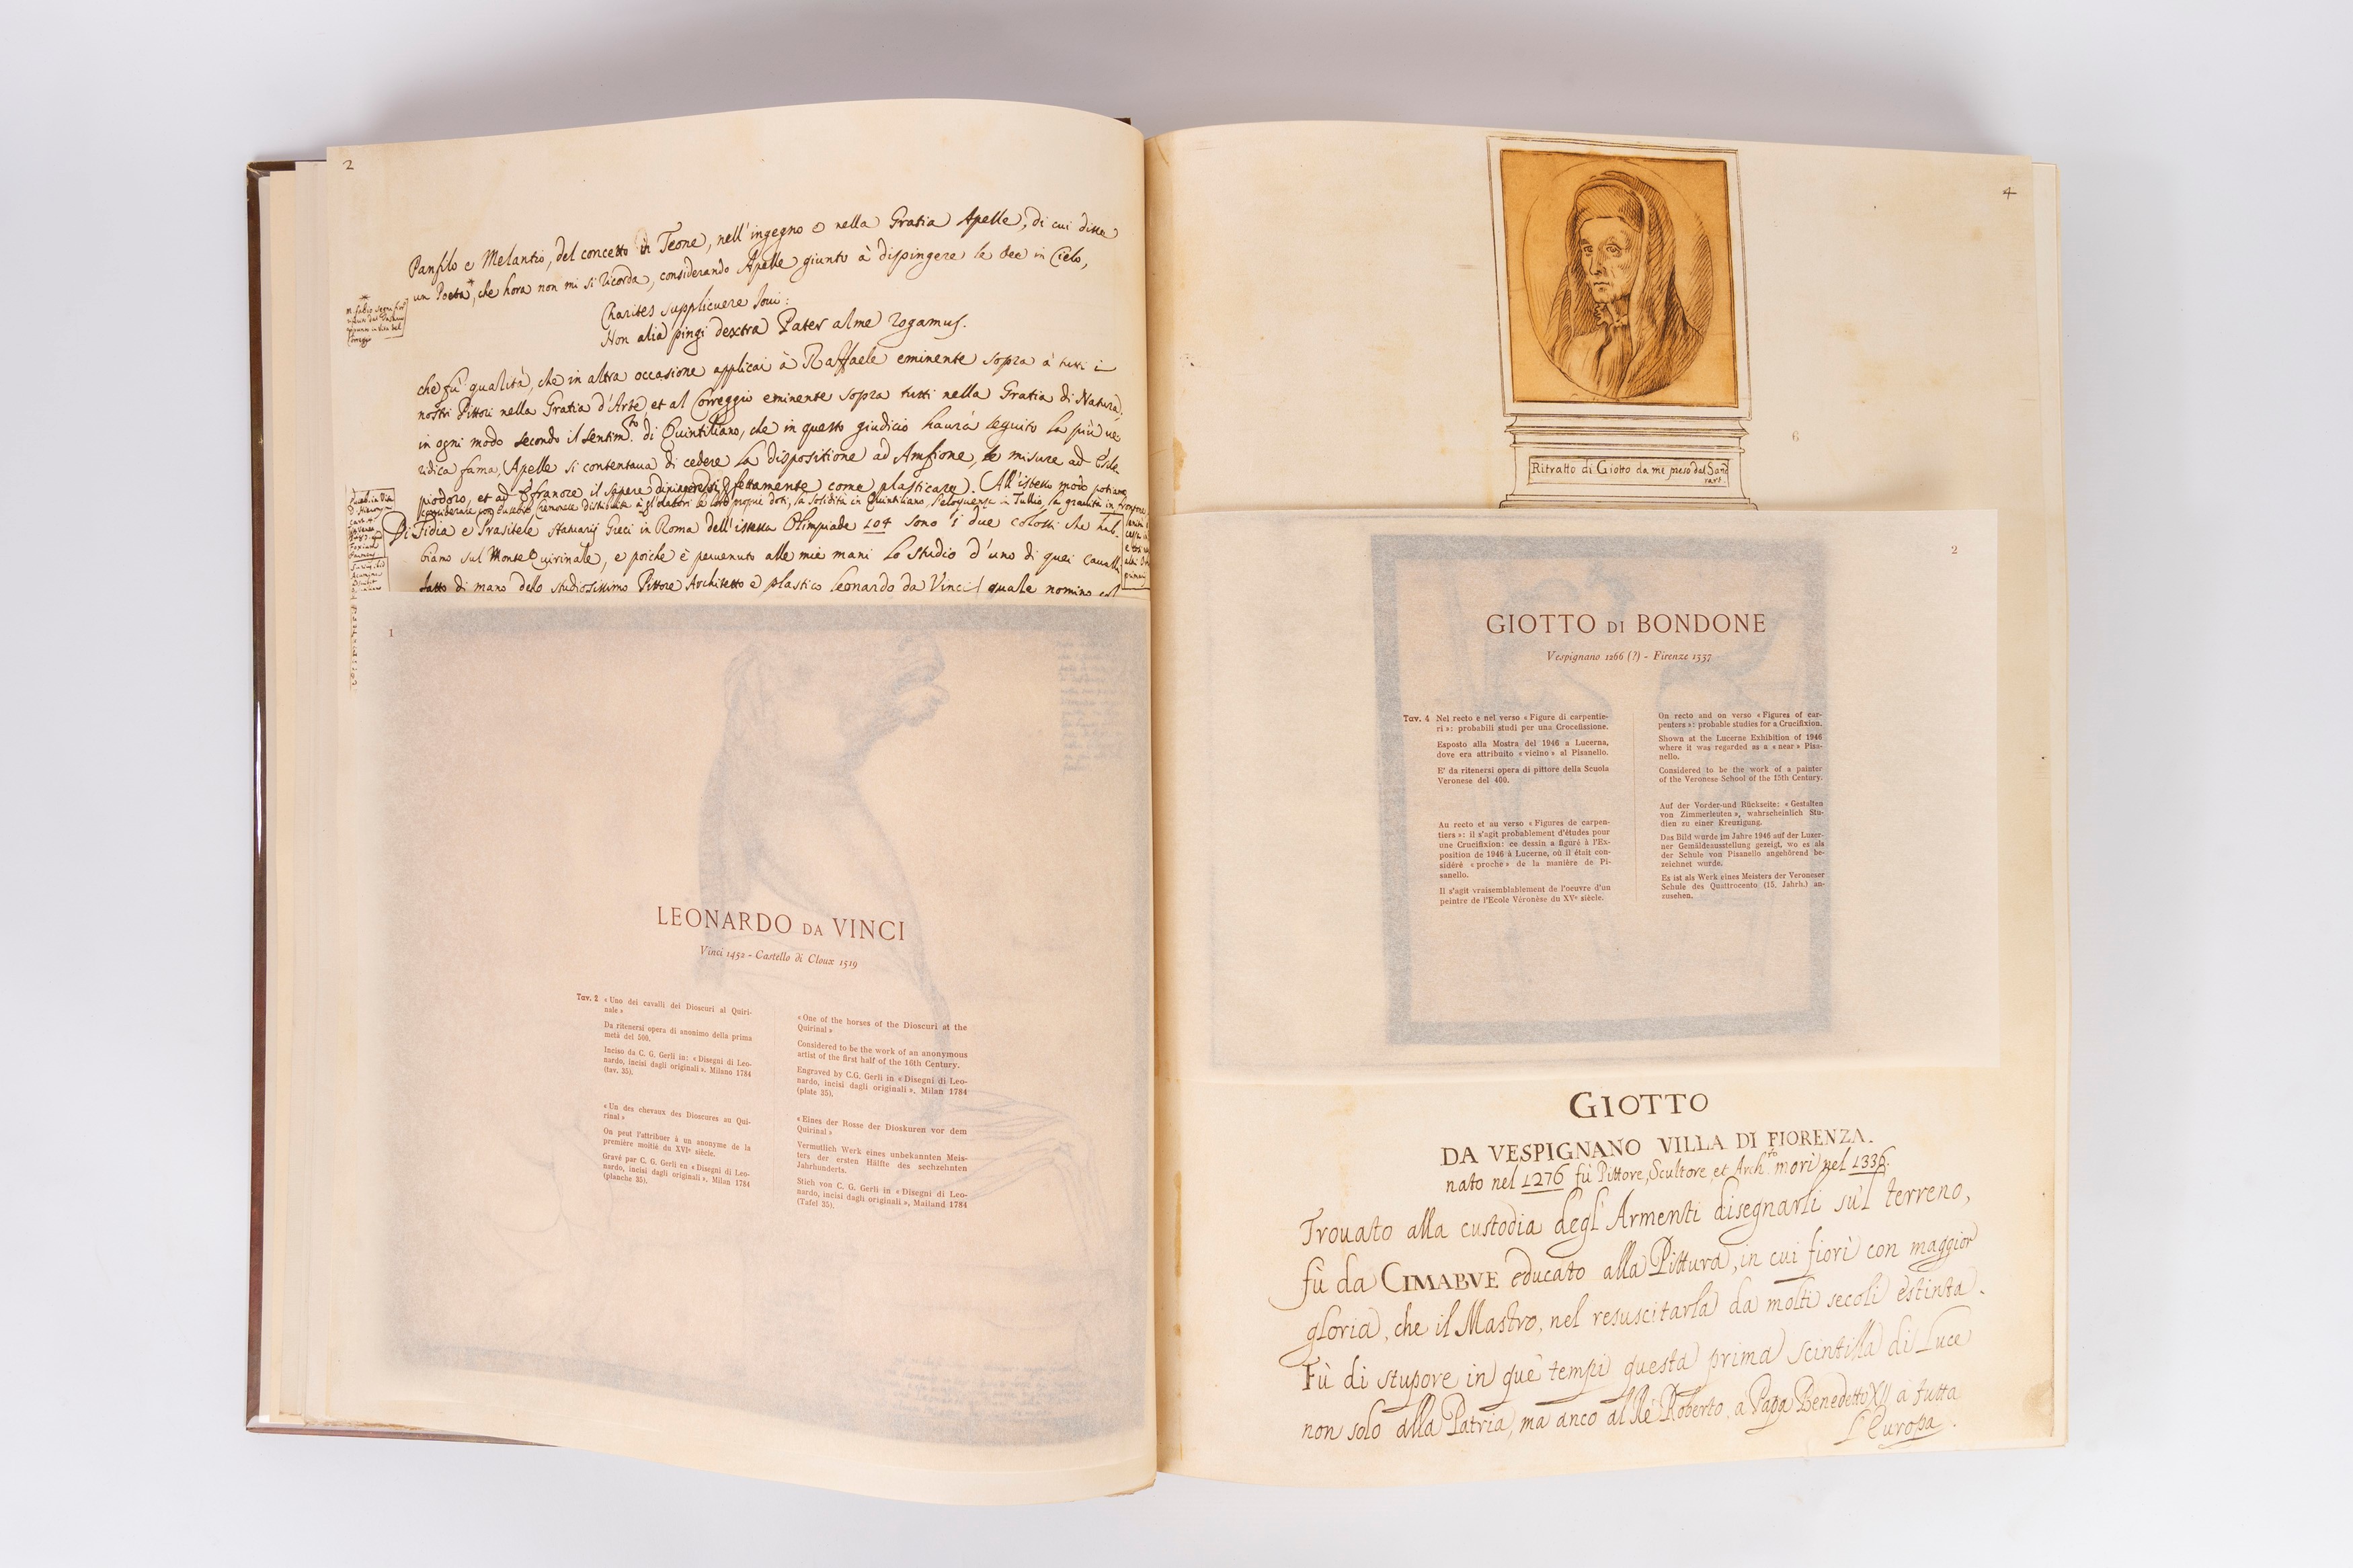 2
Panfilo e Melantio, del concetto in Teone, nell'ingegno e nella Gratia Apelle, di cui disse
un Poeta, che hora non mi si ricorda, considerando Apelle giunto à dipingere le Dee in Cielo,
Charites supplicuere Ioui:
Non alia pingi dextra Pater alme rogamus.
che fù qualità, che in altra occasione applicai à Raffaele eminente sopra à tutti i
nostri Pittori nella Gratia d'Arte et al Correggio eminente sopra tutti nella Gratia di Natura,
in ogni modo secondo il sentim.to di Quintiliano, che in questo giudicio haurà seguito la più ue
ridica fama, (Apelle si contentaua di cedere la dispositione ad Amfione, le misure ad Escle
piodoro, et ad Efranore il sapere fettamente come plasticare). (All'istesso modo
Di Fidia e Prasitele statuarij Greci in Roma dell'istessa Olimpiade 104 sono i due colossi che hab
biamo sul Monte Quirinale, e poiche è peruenuto alle mie mani lo studio d'uno di quei caualli
fatto di mano dello studiosissimo Pittore Architetto e plastico Leonardo da Vinci (quale nomino
1
LEONARDO DA VINCI
Vinci 1452 - Castello di Cloux 1519
Tav. 2 « Uno dei cavalli dei Dioscuri al Quiri-
nale »
Da ritenersi opera di anonimo della prima
metà del 500.
Inciso da C. G. Gerli in: « Disegni di Leo-
nardo, incisi dagli originali ». Milano 1784
(tav. 35).
« Un des chevaux des Dioscures au Qui-
rinal »
On peut l'attribuer à un anonyme de la
première moitié du XVIe siècle.
Gravé par C. G. Gerli en « Disegni di Leo-
nardo, incisi dagli originali », Milan 1784
(planche 35).
« One of the horses of the Dioscuri at the
Quirinal »
Considered to be the work of an anonymous
artist of the first half of the 16th Century.
Engraved by C.G. Gerli in « Disegni di Leo-
nardo, incisi dagli originali », Milan 1784
(plate 35).
« Eines der Rosse der Dioskuren vor dem
Quirinal »
Vermutlich Werk eines unbekannten Meis-
ters der ersten Hälfte des sechzehnten
Jahrhunderts.
Stich von C. G. Gerli in « Disegni di Leo-
nardo, incisi dagli originali », Mailand 1784
(Tafel 35).
4
6
Ritratto di Giotto da me preso dal Sand
rart.
2
GIOTTO DI BONDONE
Vespignano 1266 (?) - Firenze 1337
Tav. 4 Nel recto e nel verso « Figure di carpentie-
ri »: probabili studi per una Crocefissione.
Esposto alla Mostra del 1946 a Lucerna,
dove era attribuito « vicino » al Pisanello.
E' da ritenersi opera di pittore della Scuola
Veronese del 400.
Au recto et au verso « Figures de carpen-
tiers »: il s'agit probablement d'études pour
une Crucifixion: ce dessin a figuré à l'Ex-
position de 1946 à Lucerne, où il était con-
sidéré « proche » de la manière de Pi-
sanello.
Il s'agit vraisemblablement de l'oeuvre d'un
peintre de l'Ecole Véronèse du XVe siècle.
On recto and on verso « Figures of car-
penters »: probable studies for a Crucifixion.
Shown at the Lucerne Exhibition of 1946
where it was regarded as a « near » Pisa-
nello.
Considered to be the work of a painter
of the Veronese School of the 15th Century.
Auf der Vorder-und Rückseite: « Gestalten
von Zimmerleuten », wahrscheinlich Stu-
dien zu einer Kreuzigung.
Das Bild wurde im Jahre 1946 auf der Luzer-
ner Gemäldeausstellung gezeigt, wo es als
der Schule von Pisanello angehörend be-
zeichnet wurde.
Es ist als Werk eines Meisters der Veroneser
Schule des Quattrocento (15. Jahrh.) an-
zusehen.
GIOTTO
DA VESPIGNANO VILLA DI FIORENZA.
nato nel 1276 fù Pittore, Scultore, et Arch.to morì nel 1336.
Trouato alla custodia degl'Armenti disegnarli sul terreno,
fù da CIMABVE educato alla Pittura, in cui fiorì con maggior
gloria, che il Mastro, nel resuscitarla da molti secoli estinta.
Fù di stupore in què tempi questa prima scintilla di Luce
non solo alla Patria, ma anco al Rè Roberto, a Papa Benedetto XII a tutta
l'Europa.